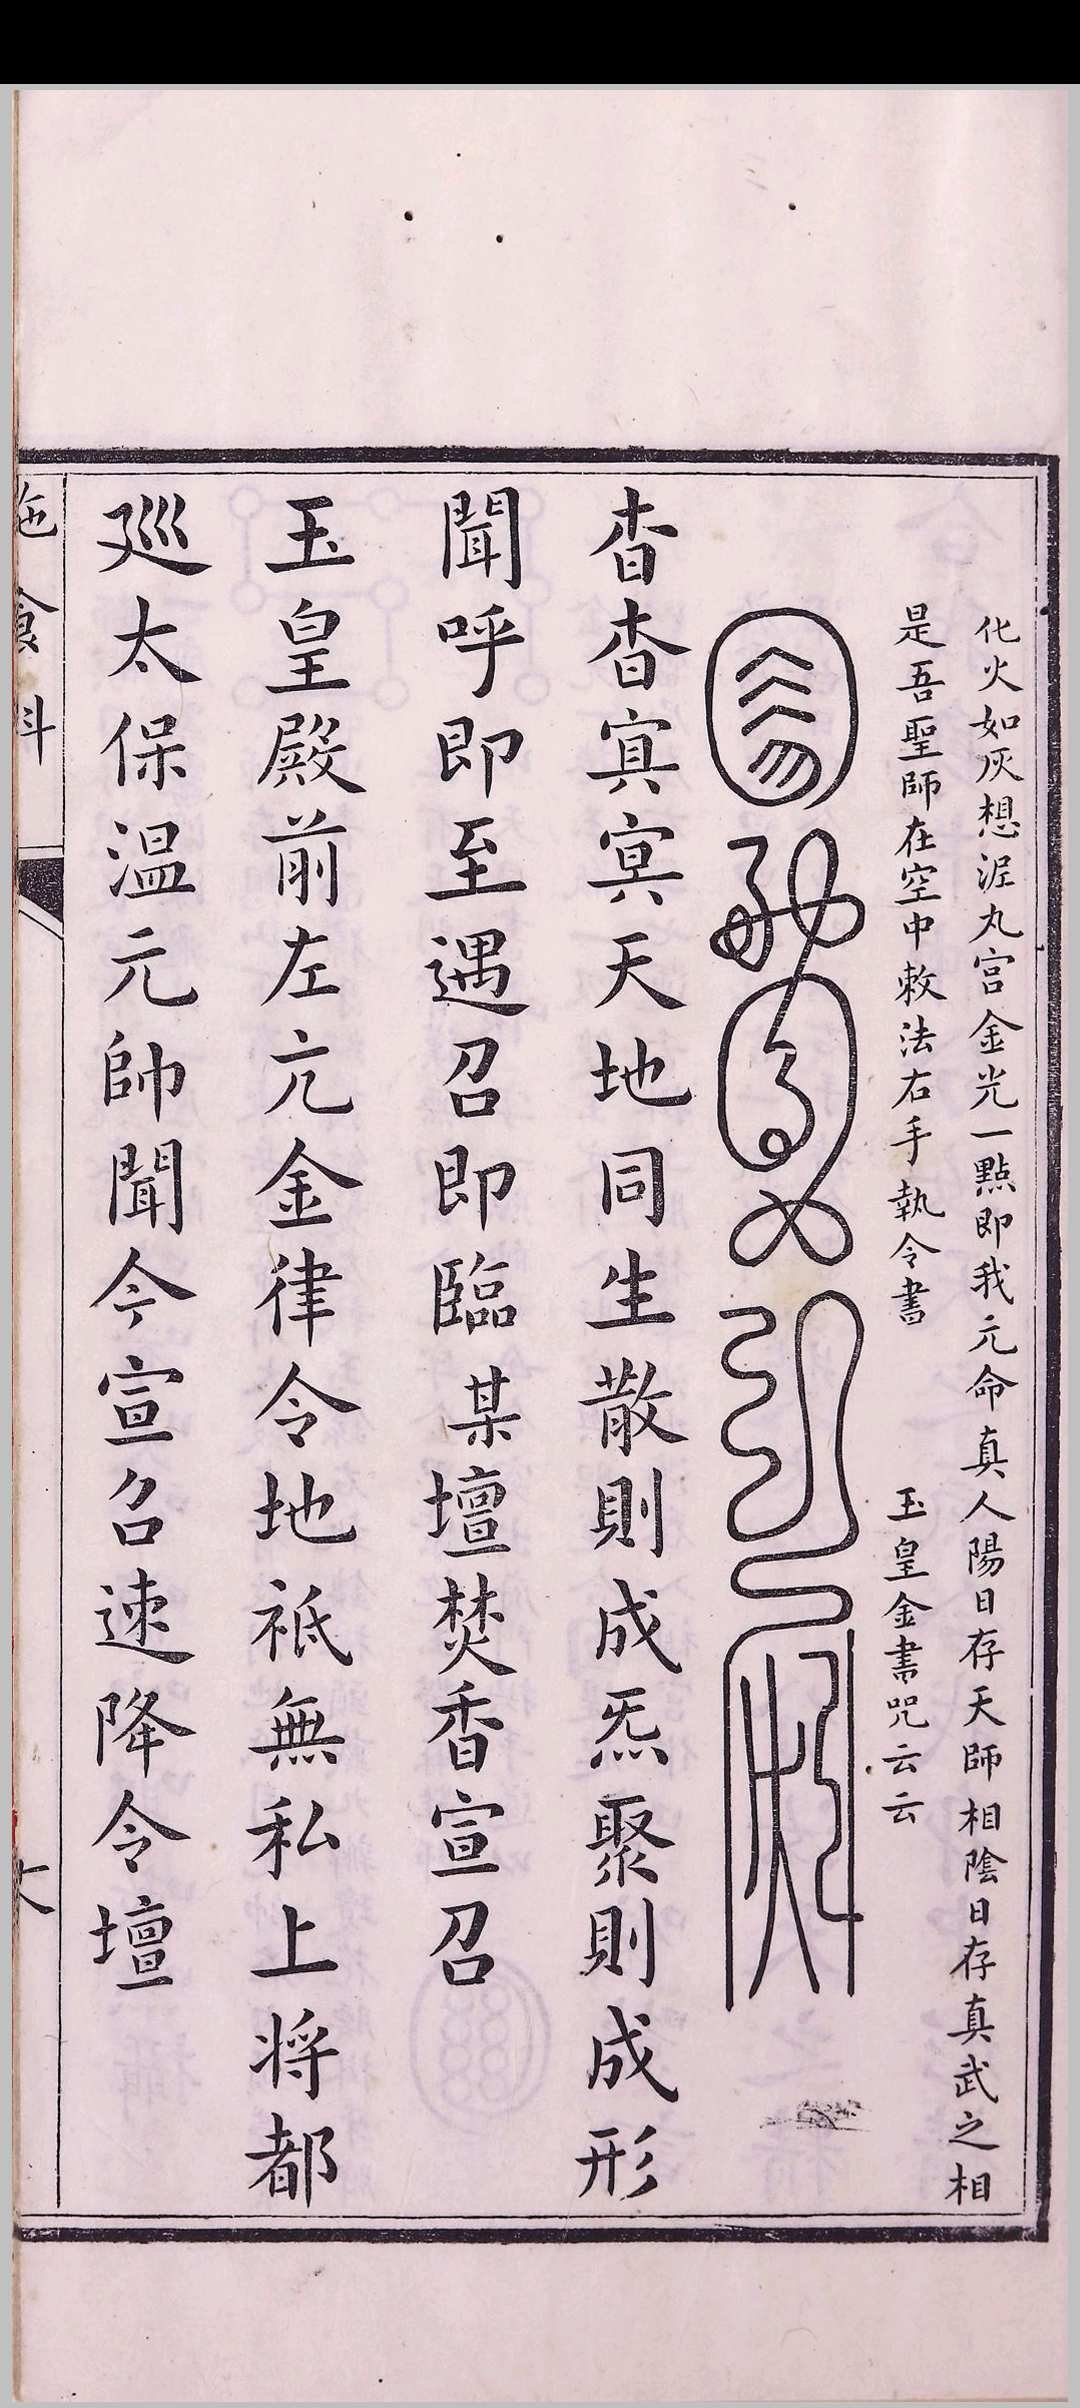 化火如灰想泥丸宮金光一點即我元命真人陽日存天師相陰日存真武之相
是吾聖師在空中敕法右手執令書 玉皇金書咒云云
杳杳寘冥天地同生散則成炁聚則成形
聞呼即至遇召即臨某壇焚香宣召
玉皇殿前左亢金律令地祇無私上將都
巡太保溫元帥聞今宣召速降令壇
施食科